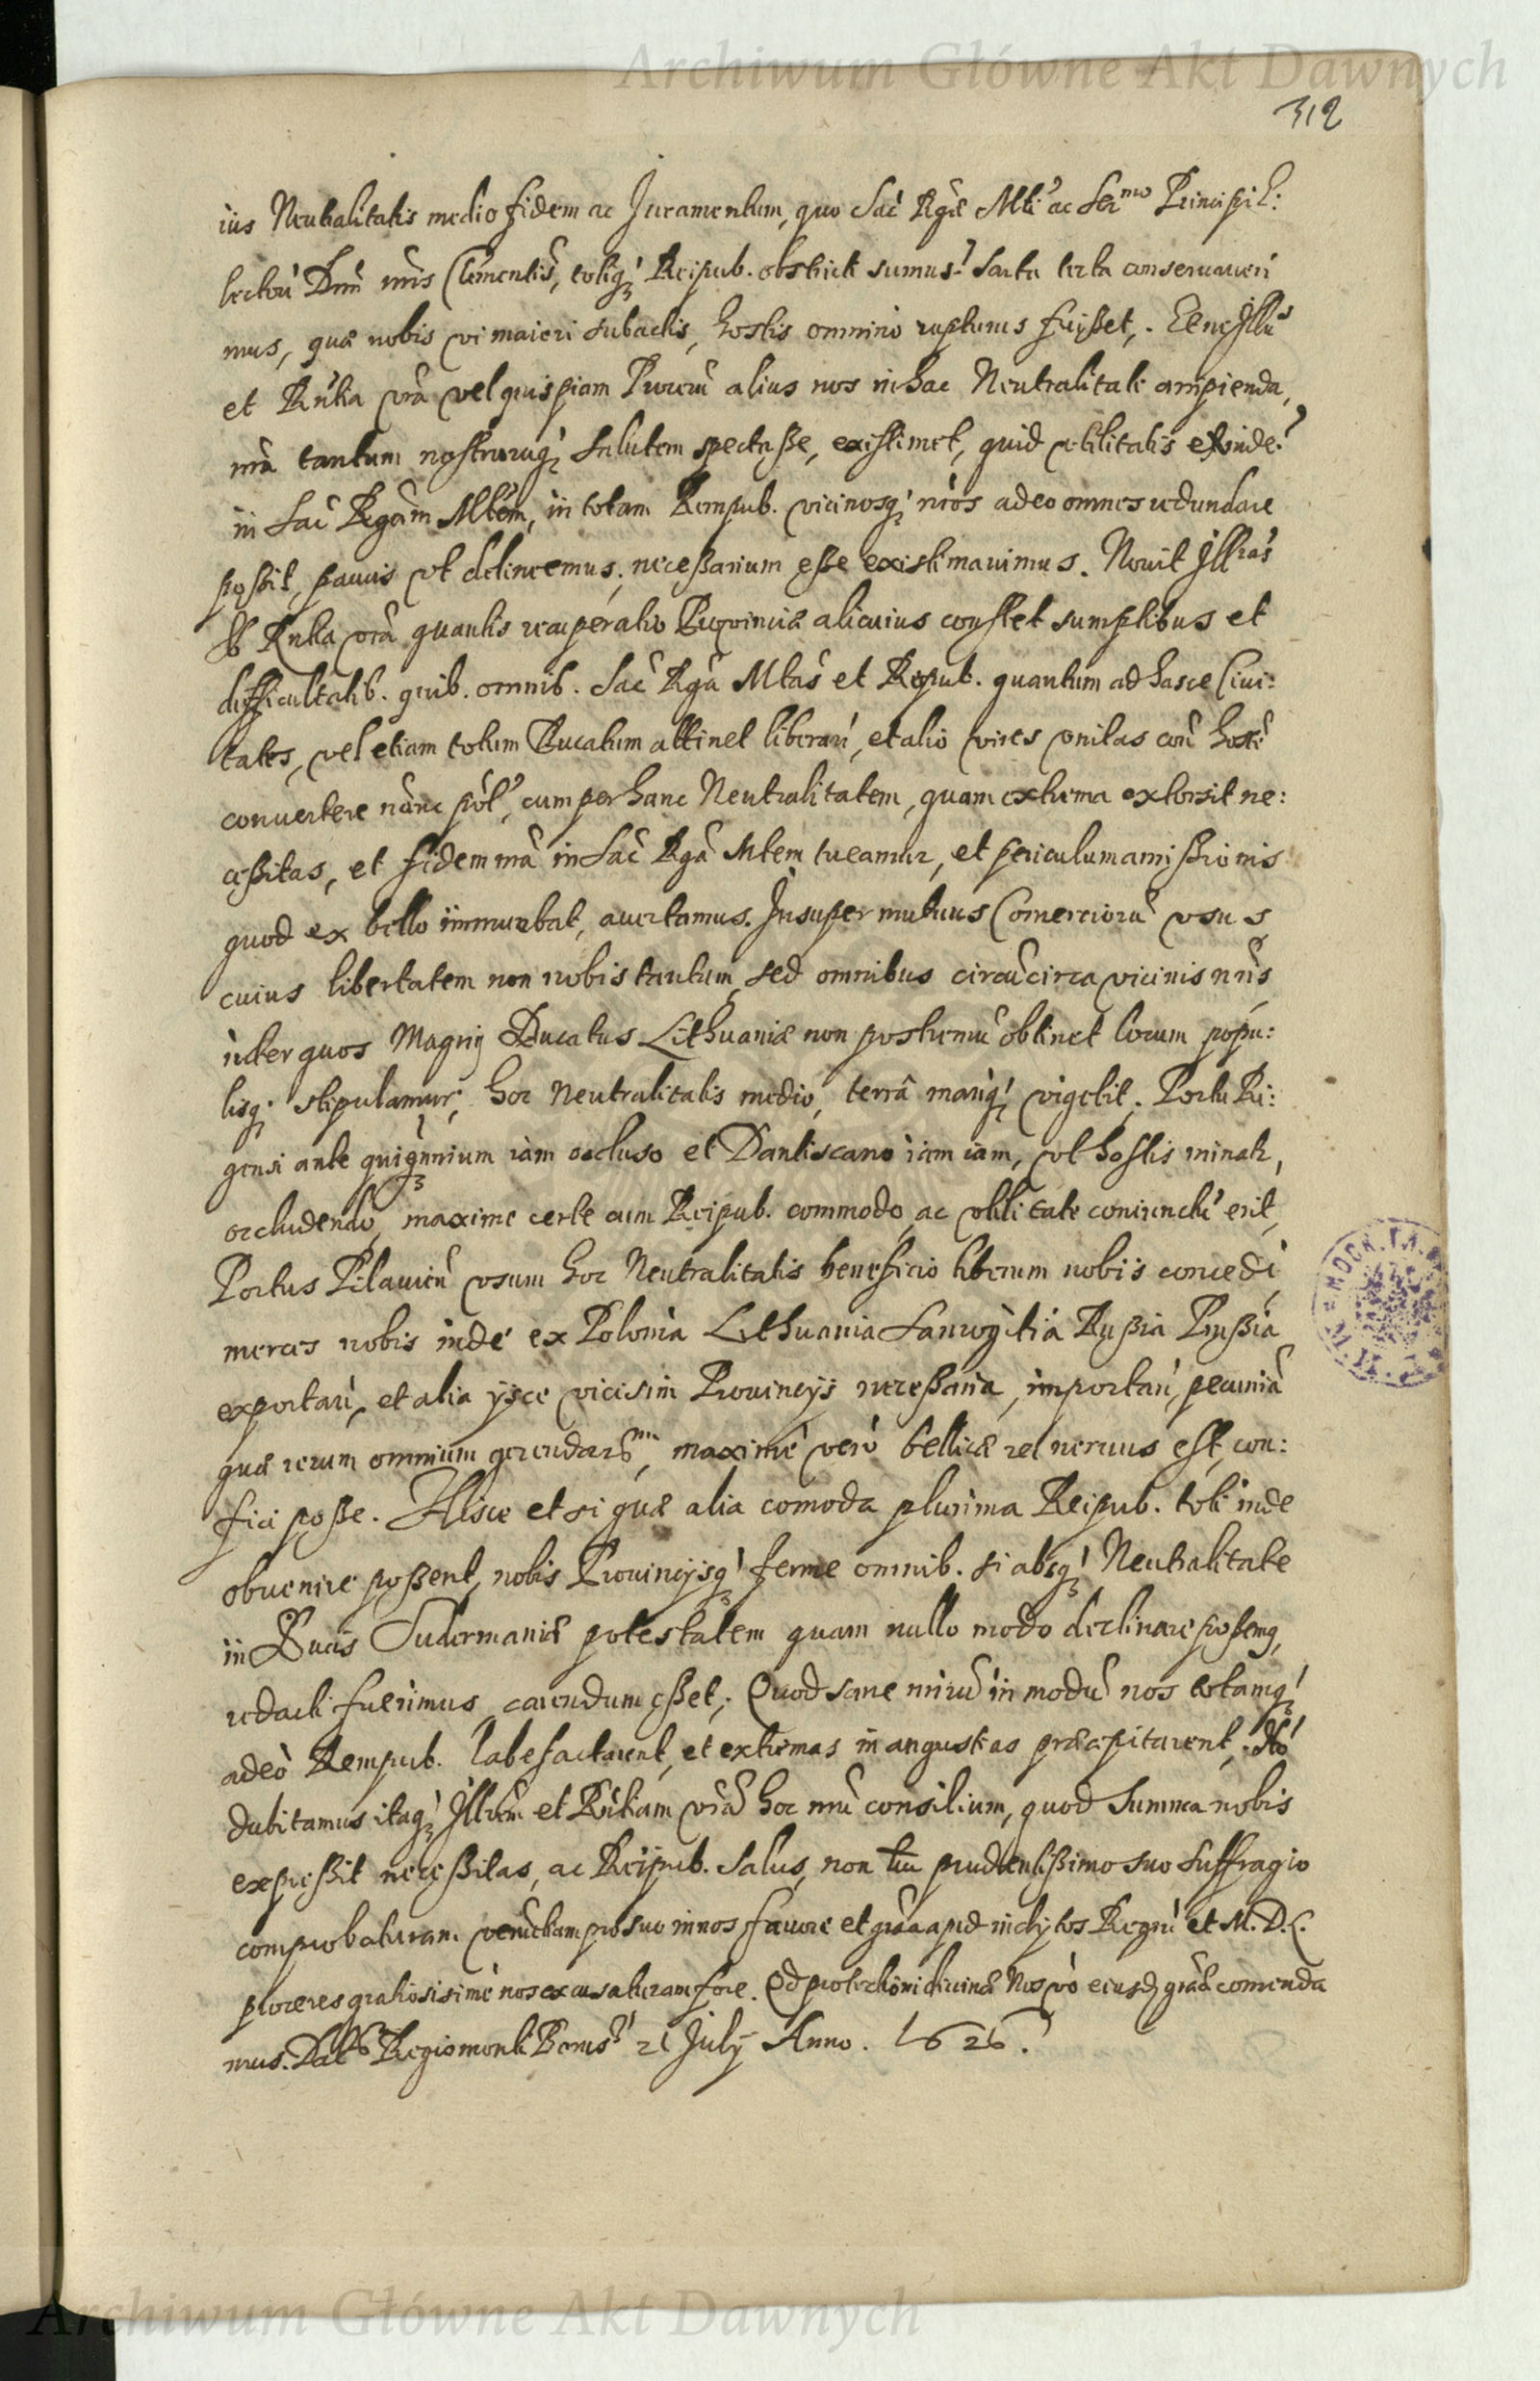 Archiwum Główne Akt Dawnych
312
ius Neutralitatis medio fidem ac Juramentum, quo Sac Rgæ Mti ac Sermo Principi E:
lectori Dnn nris Clementis, totiq; Reipub. obstricti sumus. Sarta tecta conservaveri
mus, quæ nobis vi maiori subactis, hostis omnino rupturus fuisset,. Ne
et Rntia vra vel quispiam Procerū alius nos in hac Neutralitate arripienda,
nrā tantum nostrorumq; salutem spectasse, existimet, quid utilitatis exinde
in Sac Rgam Mtem, in totam Rempub. vicinosq; nros adeo omnes redundare
possit, paucis ut delineemus, necessarium esse existimavimus. Novit Illras
et Rntia vra quantis recuperatio Provinciæ alicuius constet sumptibus et
difficultatib. quib. omnib. Sac Rga Mtas et Respub. quantum ad hasce Civi:
tates, vel etiam totum Ducatum attinet liberari, et alio vires unitas con hostē
convertere nunc pōt, cum per hanc Neutralitatem, quam extrema extorsit ne:
cessitas, et fidem nrā in Sac Rgā Mtem tueamur, et periculum amissionis
quod ex bello imminebat, avertamus. Insuper mutuus Comerciorū usus
cuius libertatem non nobis tantum, sed omnibus circūcirca vicinis nris
inter quos Magnij Ducatus Lithuaniæ non postremū obtinet locum popu:
lisq; stipulamur, hoc Neutralitatis medio, terrâ mariq; vigebit. Portu Ri:
gensi ante quinqnnium iam occluso et Dantiscano iam iam, ut hostis minatr,
occludendo, maxime certe cum Reipub. commodo, ac utilitate coniunctū erit,
Portus Pilavien usum hoc Neutralitatis beneficio liberum nobis concedi
merces nobis inde ex Polonia Lithuania Samogitia Russia Prussia
exportari, et alia ijsce vicisim Provincijs necessaria, importari, pecuniā
quæ rerum omnium gerendarū, maximè verò bellicæ rei nervus est, con:
fici posse. Hisce et si quæ alia comoda plurima Reipub. toti inde
obvenire possent, nobis Provincijsq; ferme omnib. si absq; Neutralitate
in Ducis Sudermaniæ potestatem quam nullo modo declinare possemq,
redacti fuerimus, carendum esset; Quod sane mirū in modū nos totamq;
adeò Rempub. labefactarent, et extremas in angustias præcipitarent. No
dubitamus itaq; Illrem et Rntiam vrā hoc nrū consilium, quod summa nobis
expressit necessitas, ac Reipub. salus, non tm prudentissimo suo suffragio
comprobaturam verūetiam pro suo in nos favore et grāa apd inclytos Regni et M. D. L.
proceres gratiosissimè nos excusaturam fore. Qd protectioni divinæ Nos vò eiusd grāæ comenda
mus. Datb Regiomonti Boruss 21 July Anno. 1626.
Archiwum Główne Akt Dawnych